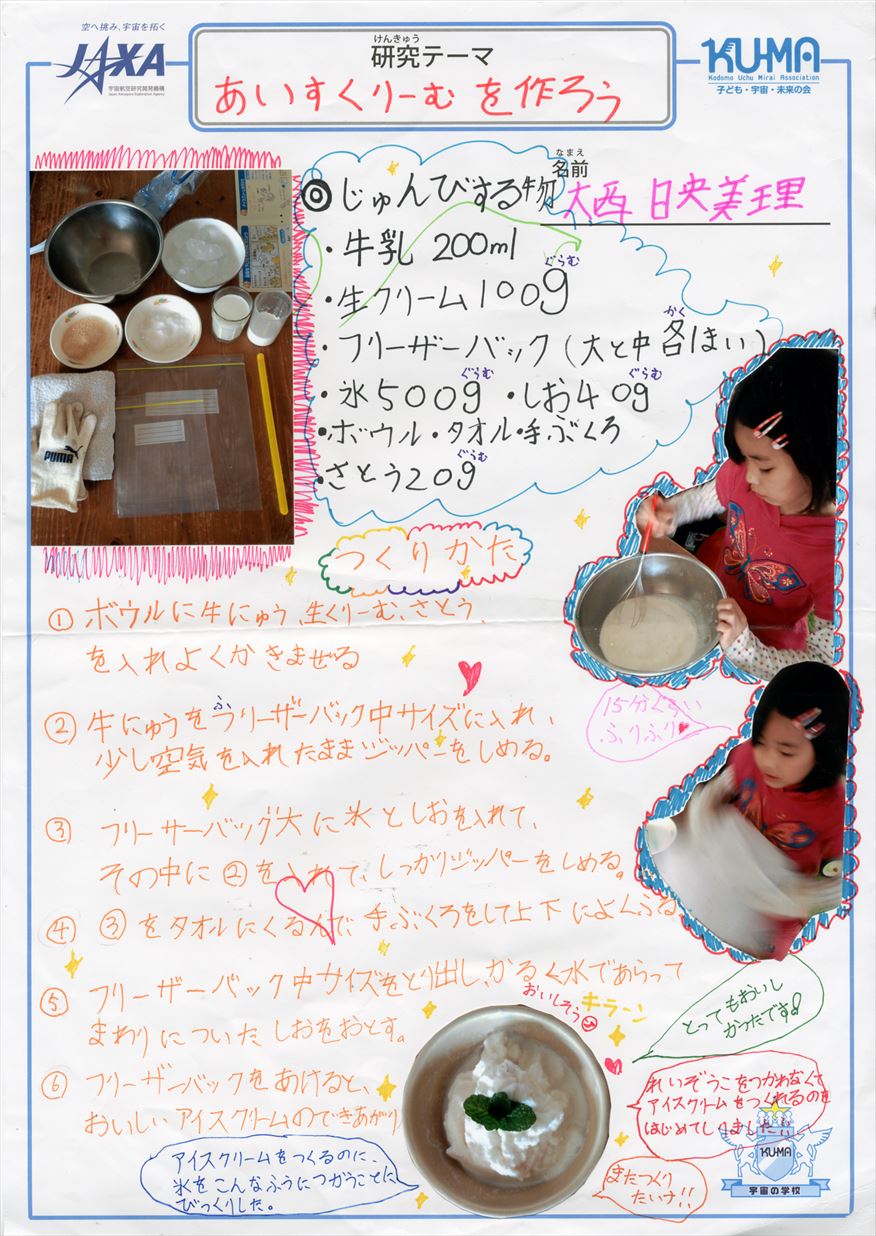 空へ挑み、宇宙を拓く
JAXA
宇宙航空研究開発機構
Japan Aerospace Exploration Agency
けんきゅう
研究テーマ
あいすくりーむを作ろう
KU-MA
Kodomo Uchu Mirai Association
子ども・宇宙・未来の会
なまえ
名前
大西 日央美理
◎じゅんびする物
・牛乳 200ml
ぐらむ
・生クリーム100g
かく
・フリーザーバック(大と中 各1まい)
ぐらむ ぐらむ
・氷500g ・しお40g
・ボウル・タオル・手ぶくろ
ぐらむ
・さとう20g
PUMA
つくりかた
① ボウルに牛にゅう、生くりーむ、さとう、
を入れよくかきまぜる
ふ
② 牛にゅうをフリーザーバック中サイズに入れ、
少し空気を入れたままジッパーをしめる。
15分くらい
ふりふり
③ フリーサーバッグ大に氷としおを入れて、
その中に②を入れて、しっかりジッパーをしめる。
④ ③をタオルにくるんで、手ぶくろをして上下によくふる。
⑤ フリーザーバック中サイズをとり出し、かるく水であらって
まわりについたしおをおとす。
おいしそう
キラーン
とってもおいし
かったです
⑥ フリーザーバックをあけると、
おいしいアイスクリームのできあがり
れいぞうこをつかわなくて
アイスクリームをつくれるのを
はじめてしりました!!
アイスクリームをつくるのに、
氷をこんなふうにつかうことに
びっくりした。
またつくり
たいナ!!
KU-MA
宇宙の学校